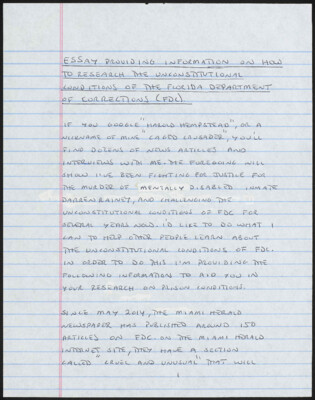 ESSAY PROVIDING INFORMATION ON HOW
TO RESEARCH THE UNCONSTITUTIONAL
CONDITIONS OF THE FLORIDA DEPARTMENT
OF CORRECTIONS (FDC)
IF YOU GOOGLE "HAROLD HEMPSTEAD", OR A
NICKNAME OF MINE "CAGED CRUSADER", YOU'LL
FIND DOZENS OF NEWS ARTICLES AND
INTERVIEWS WITH ME. THE FOREGOING WILL
SHOW I'VE BEEN FIGHTING FOR JUSTICE FOR
THE MURDER OF MENTALLY DISABLED INMATE
DARREN RAINEY, AND CHALLENGING THE
UNCONSTITUTIONAL CONDITIONS OF FDC FOR
SEVERAL YEARS NOW. I'D LIKE TO DO WHAT I
CAN TO HELP OTHER PEOPLE LEARN ABOUT
THE UNCONSTITUTIONAL CONDITIONS OF FDC.
IN ORDER TO DO THIS I'M PROVIDING THE
FOLLOWING INFORMATION TO AID YOU IN
YOUR RESEARCH ON PRISON CONDITIONS.
SINCE MAY 2014, THE MIAMI HERALD
NEWSPAPER HAS PUBLISHED AROUND 150
ARTICLES ON FDC. ON THE MIAMI HERALD
INTERNET SITE, THEY HAVE A SECTION
CALLED "CRUEL AND UNUSUAL" THAT WILL
1